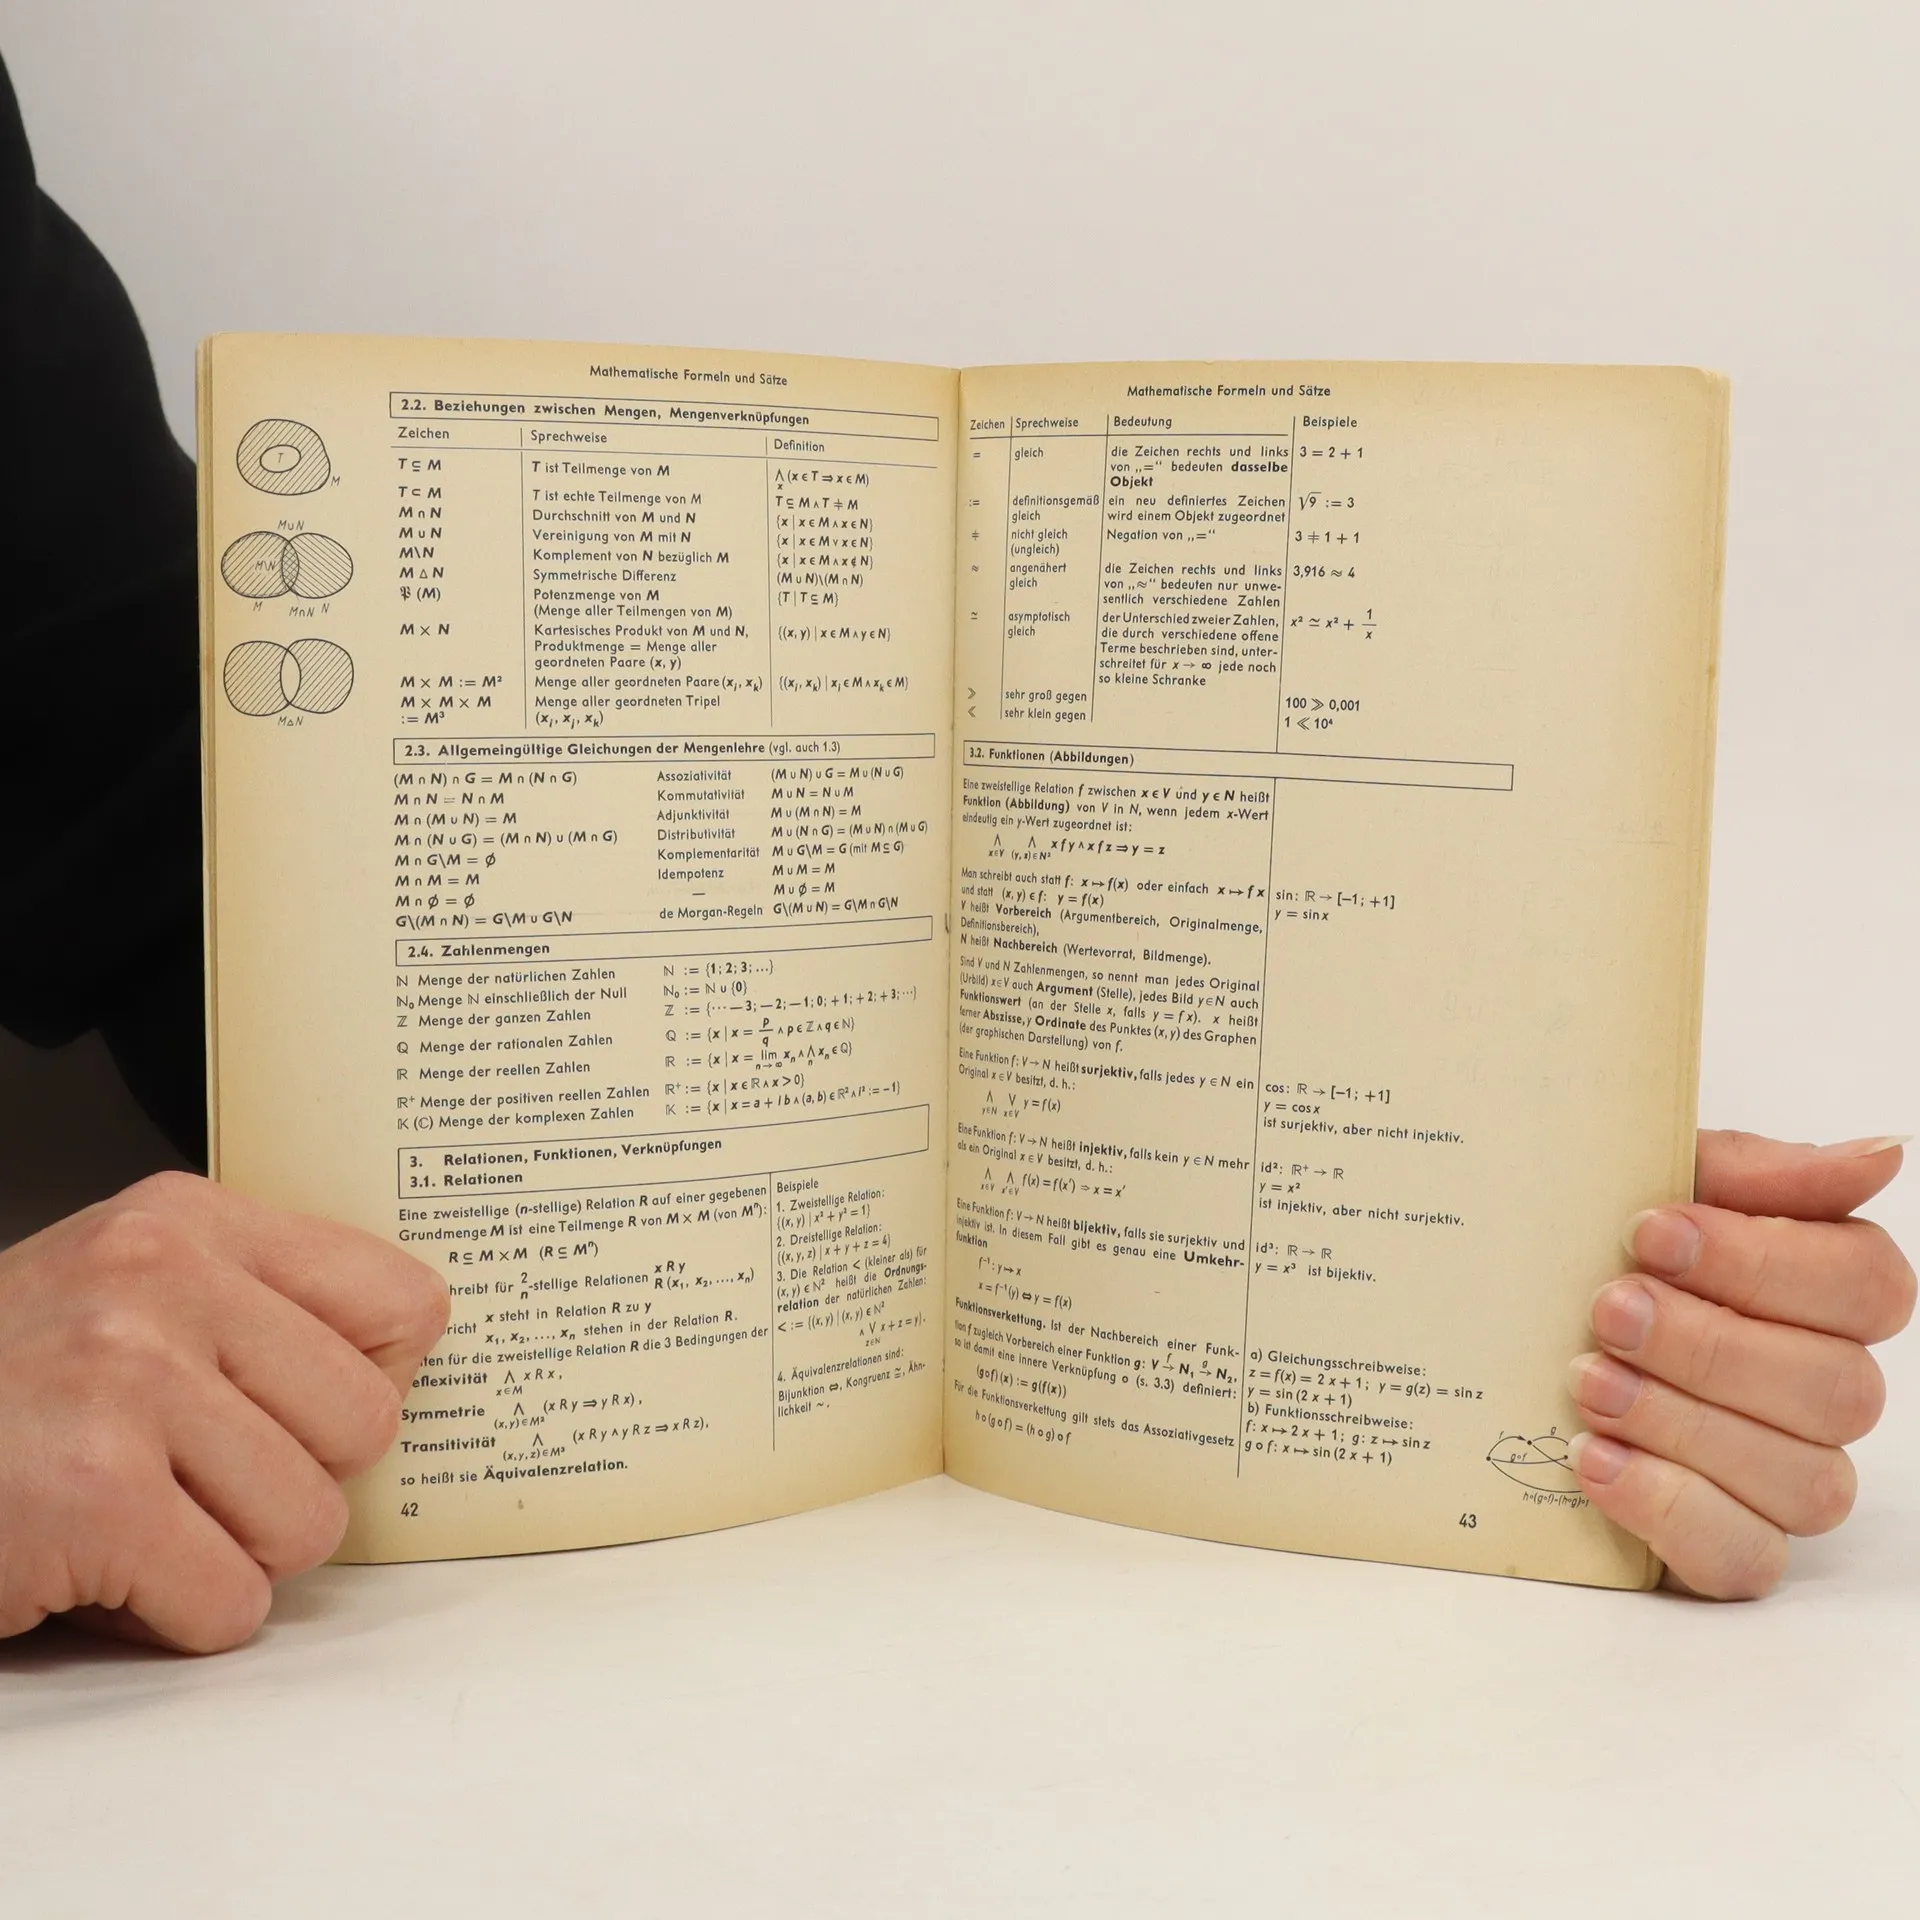 Mathematische Formeln und Sätze
2.2. Beziehungen zwischen Mengen, Mengenverknüpfungen
Zeichen Sprechweise Definition
T ⊆ M T ist Teilmenge von M ⋀ (x ∈ T ⇒ x ∈ M)
x
T ⊂ M T ist echte Teilmenge von M T ⊆ M ∧ T ≠ M
M ∩ N Durchschnitt von M und N {x | x ∈ M ∧ x ∈ N}
M ∪ N Vereinigung von M mit N {x | x ∈ M ∨ x ∈ N}
M\N Komplement von N bezüglich M {x | x ∈ M ∧ x ∉ N}
M △ N Symmetrische Differenz (M ∪ N)\(M ∩ N)
𝔓 (M) Potenzmenge von M {T | T ⊆ M}
(Menge aller Teilmengen von M)
M × N Kartesisches Produkt von M und N, {(x, y) | x ∈ M ∧ y ∈ N}
Produktmenge = Menge aller
geordneten Paare (x, y)
M × M := M² Menge aller geordneten Paare (xᵢ, xₖ) {(xᵢ, xₖ) | xᵢ ∈ M ∧ xₖ ∈ M}
M × M × M Menge aller geordneten Tripel
:= M³ (xᵢ, xⱼ, xₖ)
T
M
M∪N
M\N
M M∩N N
M△N
2.3. Allgemeingültige Gleichungen der Mengenlehre (vgl. auch 1.3)
(M ∩ N) ∩ G = M ∩ (N ∩ G) Assoziativität (M ∪ N) ∪ G = M ∪ (N ∪ G)
M ∩ N = N ∩ M Kommutativität M ∪ N = N ∪ M
M ∩ (M ∪ N) = M Adjunktivität M ∪ (M ∩ N) = M
M ∩ (N ∪ G) = (M ∩ N) ∪ (M ∩ G) Distributivität M ∪ (N ∩ G) = (M ∪ N) ∩ (M ∪ G)
M ∩ G\M = ∅ Komplementarität M ∪ G\M = G (mit M ⊆ G)
M ∩ M = M Idempotenz M ∪ M = M
M ∩ ∅ = ∅ — M ∪ ∅ = M
G\(M ∩ N) = G\M ∪ G\N de Morgan-Regeln G\(M ∪ N) = G\M ∩ G\N
2.4. Zahlenmengen
ℕ Menge der natürlichen Zahlen ℕ := {1; 2; 3; ...}
ℕ₀ Menge ℕ einschließlich der Null ℕ₀ := ℕ ∪ {0}
ℤ Menge der ganzen Zahlen ℤ := {··· — 3; — 2; — 1; 0; + 1; + 2; + 3; ···}
ℚ Menge der rationalen Zahlen ℚ := {x | x = p/q ∧ p ∈ ℤ ∧ q ∈ ℕ}
ℝ Menge der reellen Zahlen ℝ := {x | x = lim xₙ ∧ ⋀ xₙ ∈ ℚ}
n → ∞ n
ℝ⁺ Menge der positiven reellen Zahlen ℝ⁺ := {x | x ∈ ℝ ∧ x > 0}
𝕂 (ℂ) Menge der komplexen Zahlen 𝕂 := {x | x = a + i b ∧ (a, b) ∈ ℝ² ∧ i² := — 1}
3. Relationen, Funktionen, Verknüpfungen
3.1. Relationen
Eine zweistellige (n-stellige) Relation R auf einer gegebenen
Grundmenge M ist eine Teilmenge R von M × M (von Mⁿ):
R ⊆ M × M (R ⊆ Mⁿ)
hreibt für 2/n-stellige Relationen x R y
R (x₁, x₂, ..., xₙ)
richt x steht in Relation R zu y
x₁, x₂, ..., xₙ stehen in der Relation R.
ten für die zweistellige Relation R die 3 Bedingungen der
eflexivität ⋀ x R x,
x ∈ M
Symmetrie ⋀ (x R y ⇒ y R x),
(x, y) ∈ M²
Transitivität ⋀ (x R y ∧ y R z ⇒ x R z),
(x, y, z) ∈ M³
so heißt sie Äquivalenzrelation.
Beispiele
1. Zweistellige Relation:
{(x, y) | x² + y² = 1}
2. Dreistellige Relation:
{(x, y, z) | x + y + z = 4}
3. Die Relation < (kleiner als) für
(x, y) ∈ ℕ² heißt die Ordnungs-
relation der natürlichen Zahlen:
< := {(x, y) | (x, y) ∈ ℕ²
∧ ⋁ x + z = y}.
z∈ℕ
4. Äquivalenzrelationen sind:
Bijunktion ⇔, Kongruenz ≅, Ähn-
lichkeit ~.
42
Mathematische Formeln und Sätze
Zeichen Sprechweise Bedeutung Beispiele
= gleich die Zeichen rechts und links 3 = 2 + 1
von „=“ bedeuten dasselbe
Objekt
:= definitionsgemäß ein neu definiertes Zeichen √9 := 3
gleich wird einem Objekt zugeordnet
≠ nicht gleich Negation von „=“ 3 ≠ 1 + 1
(ungleich)
≈ angenähert die Zeichen rechts und links 3,916 ≈ 4
gleich von „≈“ bedeuten nur unwe-
sentlich verschiedene Zahlen
≃ asymptotisch der Unterschied zweier Zahlen, x² ≃ x² + 1/x
gleich die durch verschiedene offene
Terme beschrieben sind, unter-
schreitet für x → ∞ jede noch
so kleine Schranke
≫ sehr groß gegen 100 ≫ 0,001
≪ sehr klein gegen 1 ≪ 10⁴
3.2. Funktionen (Abbildungen)
Eine zweistellige Relation f zwischen x ∈ V und y ∈ N heißt
Funktion (Abbildung) von V in N, wenn jedem x-Wert
eindeutig ein y-Wert zugeordnet ist:
⋀ ⋀ x f y ∧ x f z ⇒ y = z
x∈V (y, z) ∈ N²
Man schreibt auch statt f: x ↦ f(x) oder einfach x ↦ f x
und statt (x, y) ∈ f: y = f(x)
V heißt Vorbereich (Argumentbereich, Originalmenge,
Definitionsbereich),
N heißt Nachbereich (Wertevorrat, Bildmenge).
Sind V und N Zahlenmengen, so nennt man jedes Original
(Urbild) x∈V auch Argument (Stelle), jedes Bild y∈N auch
Funktionswert (an der Stelle x, falls y = f x). x heißt
ferner Abszisse, y Ordinate des Punktes (x, y) des Graphen
(der graphischen Darstellung) von f.
Eine Funktion f: V → N heißt surjektiv, falls jedes y ∈ N ein
Original x ∈ V besitzt, d. h.:
⋀ ⋁ y = f(x)
y∈N x∈V
Eine Funktion f: V → N heißt injektiv, falls kein y ∈ N mehr
als ein Original x ∈ V besitzt, d. h.:
⋀ ⋀ f(x) = f(x′) ⇒ x = x′
x∈V x′∈V
Eine Funktion f: V → N heißt bijektiv, falls sie surjektiv und
injektiv ist. In diesem Fall gibt es genau eine Umkehr-
funktion
f⁻¹: y ↦ x
x = f⁻¹(y) ⇔ y = f(x)
Funktionsverkettung. Ist der Nachbereich einer Funk-
tion f zugleich Vorbereich einer Funktion g: V →f N₁ →g N₂,
so ist damit eine innere Verknüpfung o (s. 3.3) definiert:
(gof)(x) := g(f(x))
Für die Funktionsverkettung gilt stets das Assoziativgesetz
h o (g o f) = (h o g) o f
sin: ℝ → [-1; +1]
y = sin x
cos: ℝ → [-1; +1]
y = cos x
ist surjektiv, aber nicht injektiv.
id²: ℝ⁺ → ℝ
y = x²
ist injektiv, aber nicht surjektiv.
id³: ℝ → ℝ
y = x³ ist bijektiv.
a) Gleichungsschreibweise:
z = f(x) = 2 x + 1; y = g(z) = sin z
y = sin (2 x + 1)
b) Funktionsschreibweise:
f: x ↦ 2 x + 1; g: z ↦ sin z
g o f: x ↦ sin (2 x + 1)
f g
g∘f
h∘(g∘f)=(h∘g)∘f
43